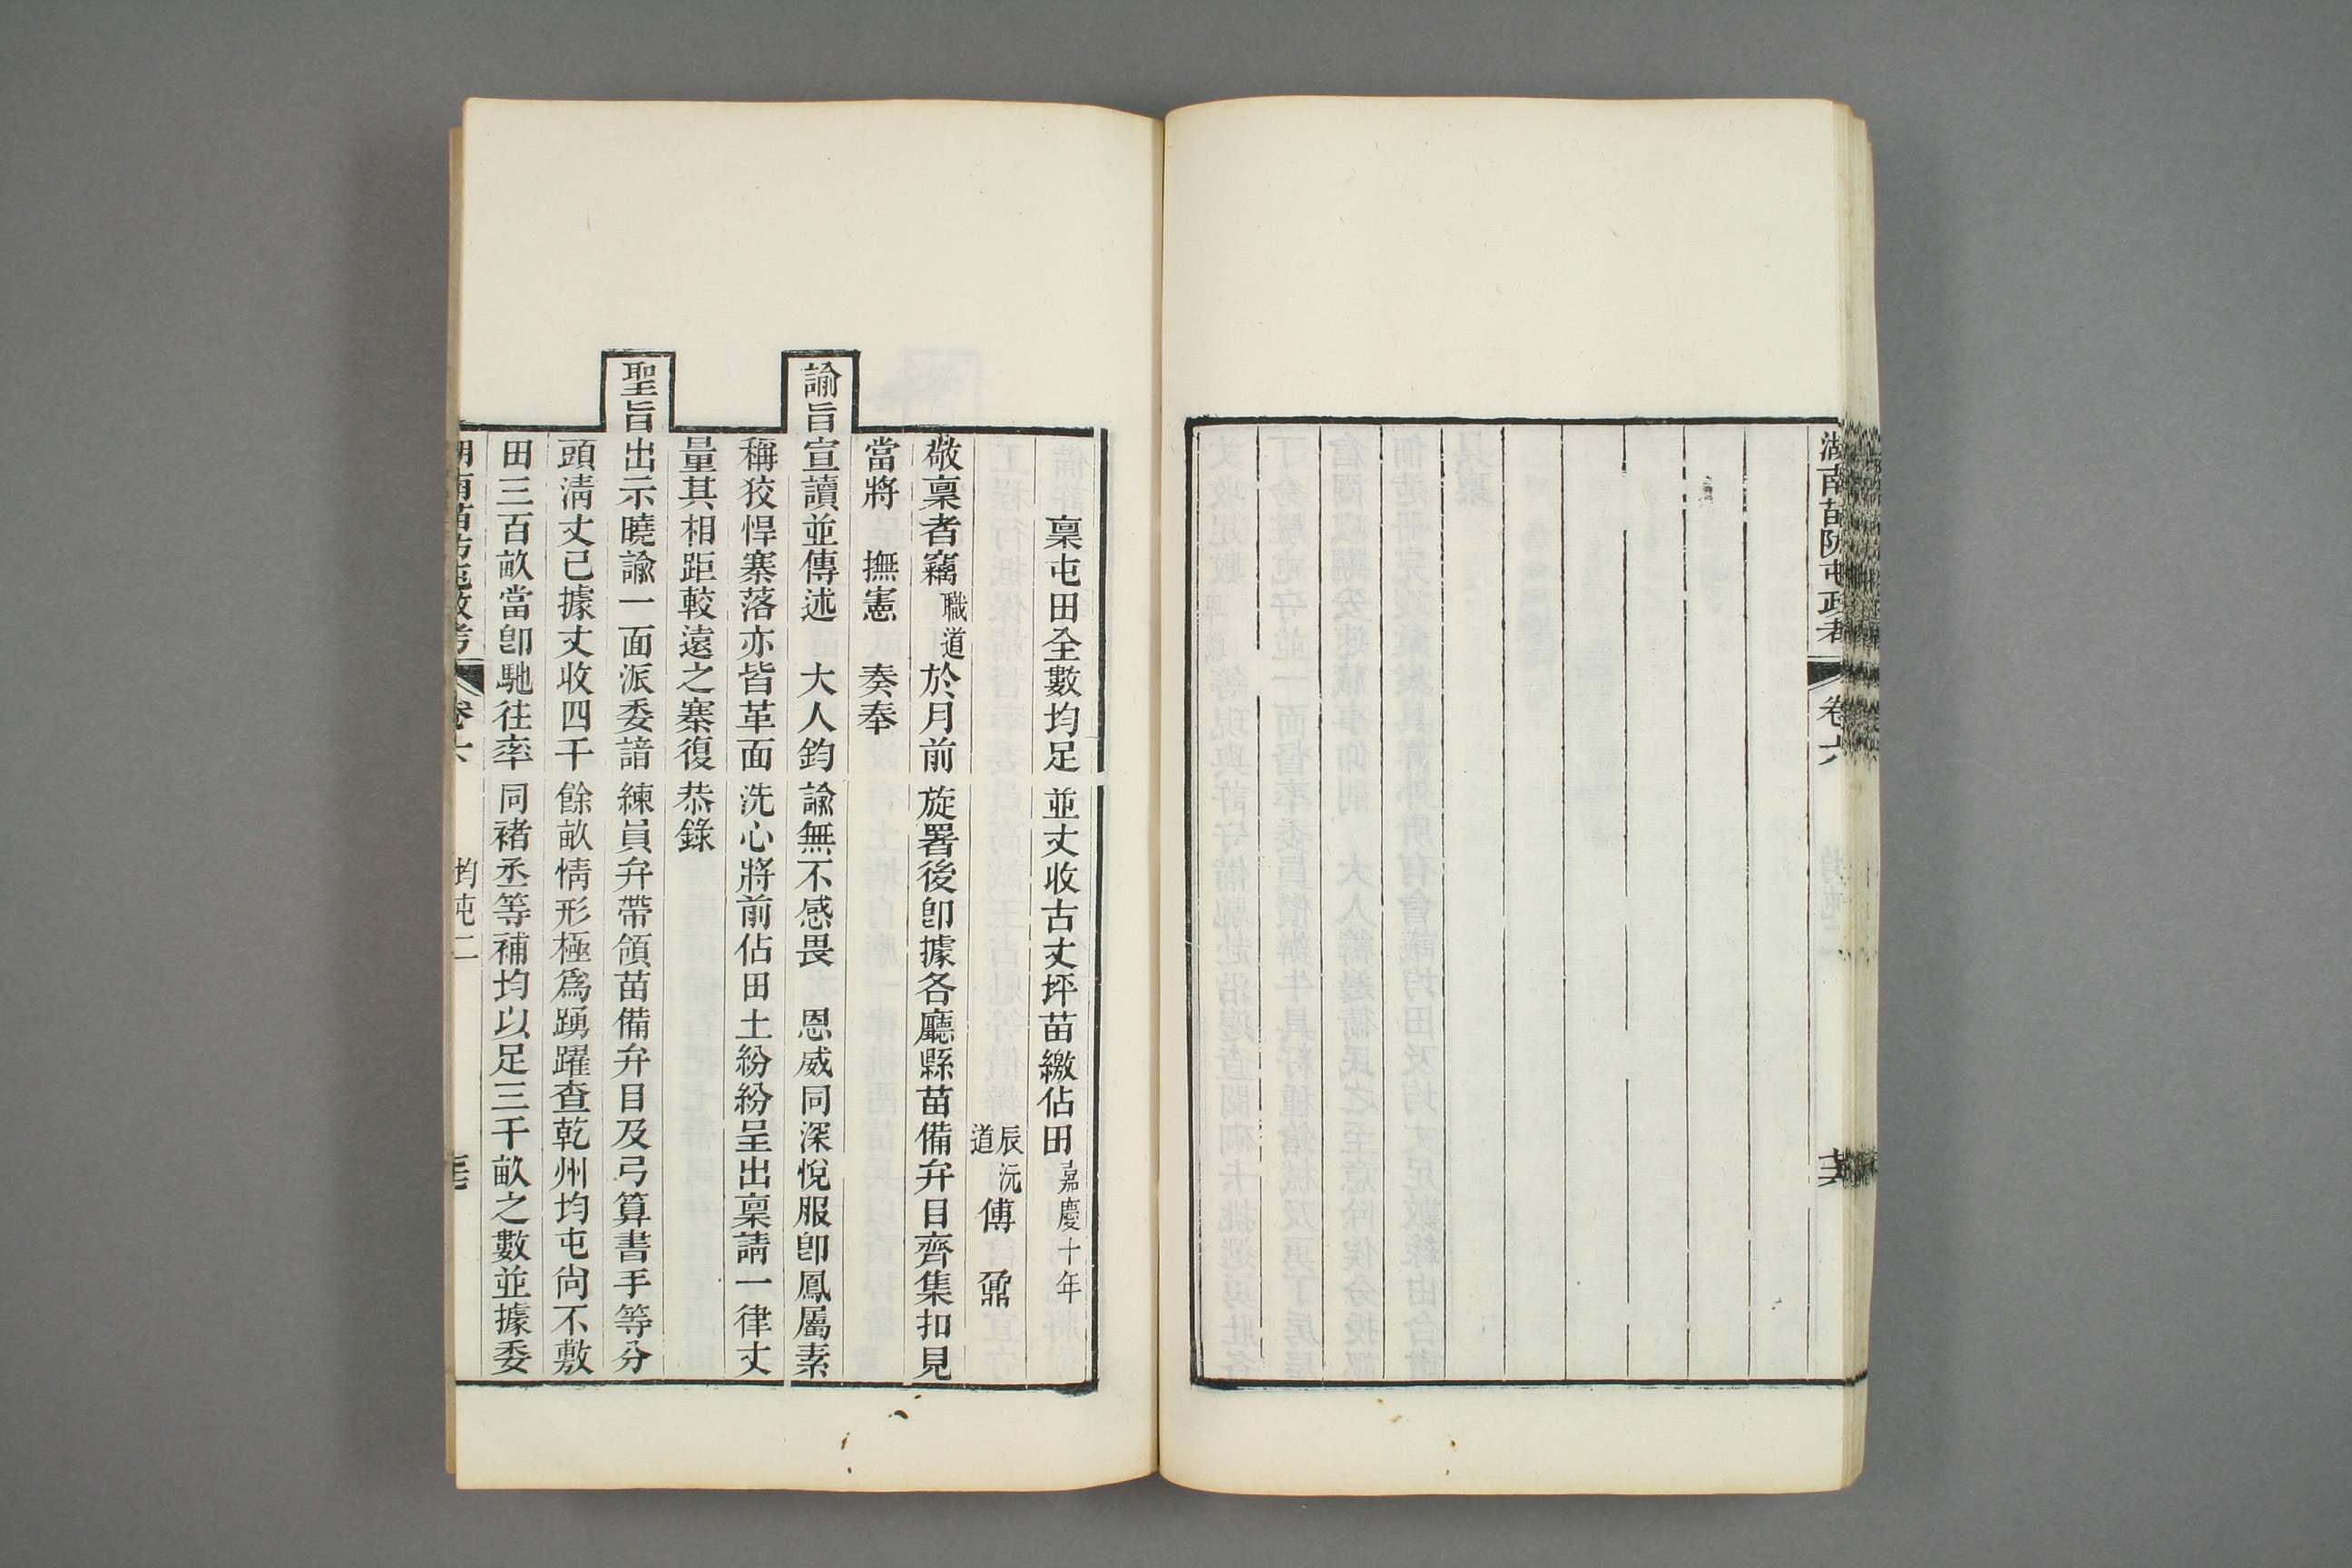 湖南苗防屯政考
卷六
稟屯田全數均足並丈收古丈坪苗繳佔田嘉慶十年
辰沅道傅鼐
敬稟者竊職道於月前旋署後卽據各廳縣苗備弁目齊集扣見
當將 撫憲 奏奉
諭旨宣讀並傳述 大人鈞諭無不感畏 恩威同深悅服卽鳳屬素
稱狡悍寨落亦皆革面洗心將前佔田土紛紛呈出稟請一律丈
量其相距較遠之寨復恭錄
聖旨出示曉諭一面派委諳練員弁帶領苗備弁目及弓算書手等分
頭清丈已據丈收四千餘畝情形極爲踴躍查乾州均屯尙不敷
田三百畝當卽馳往率同褚丞等補均以足三千畝之數並據委
湖南苗防屯政考 卷六 均屯二